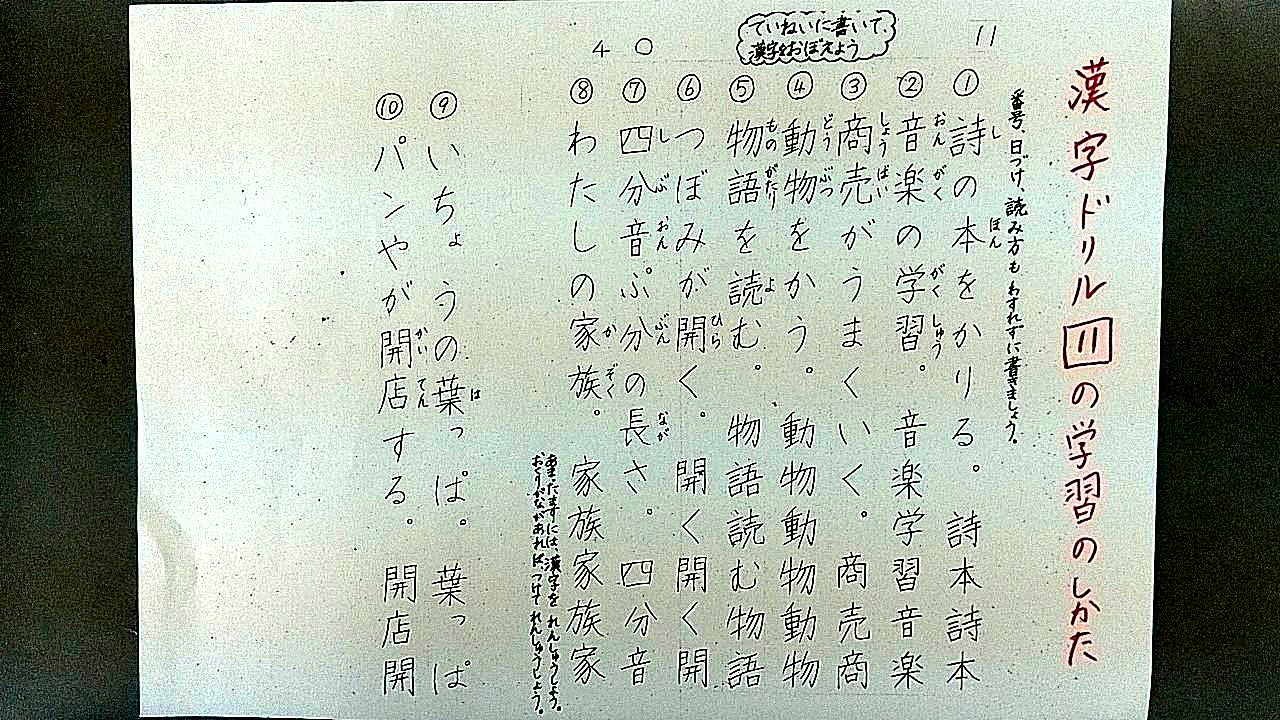 漢字ドリル11の学習のしかた
番号、日づけ、読み方も わすれずに書きましょう。
11
ていねいに書いて、
漢字をおぼえよう
40
①詩の本をかりる。詩本詩本
し ほん
②音楽の学習。音楽学習音楽
おん がく がく しゅう
③商売がうまくいく。商売商
しょう ばい
④動物をかう。動物動物動物
どう ぶつ
⑤物語を読む。物語読む物語
もの がたり よ
⑥つぼみが開く。開く開く開
ひら
⑦四分音ぷ分の長さ。四分音
し ぶ おん ぶん なが
⑧わたしの家族。家族家族家
か ぞく
あまったますには、漢字を れんしゅうしよう。
おくりがながあれば つけて れんしゅうしよう。
⑨いちょうの葉っぱ。葉っぱ
は
⑩パンやが開店する。開店開
かい てん